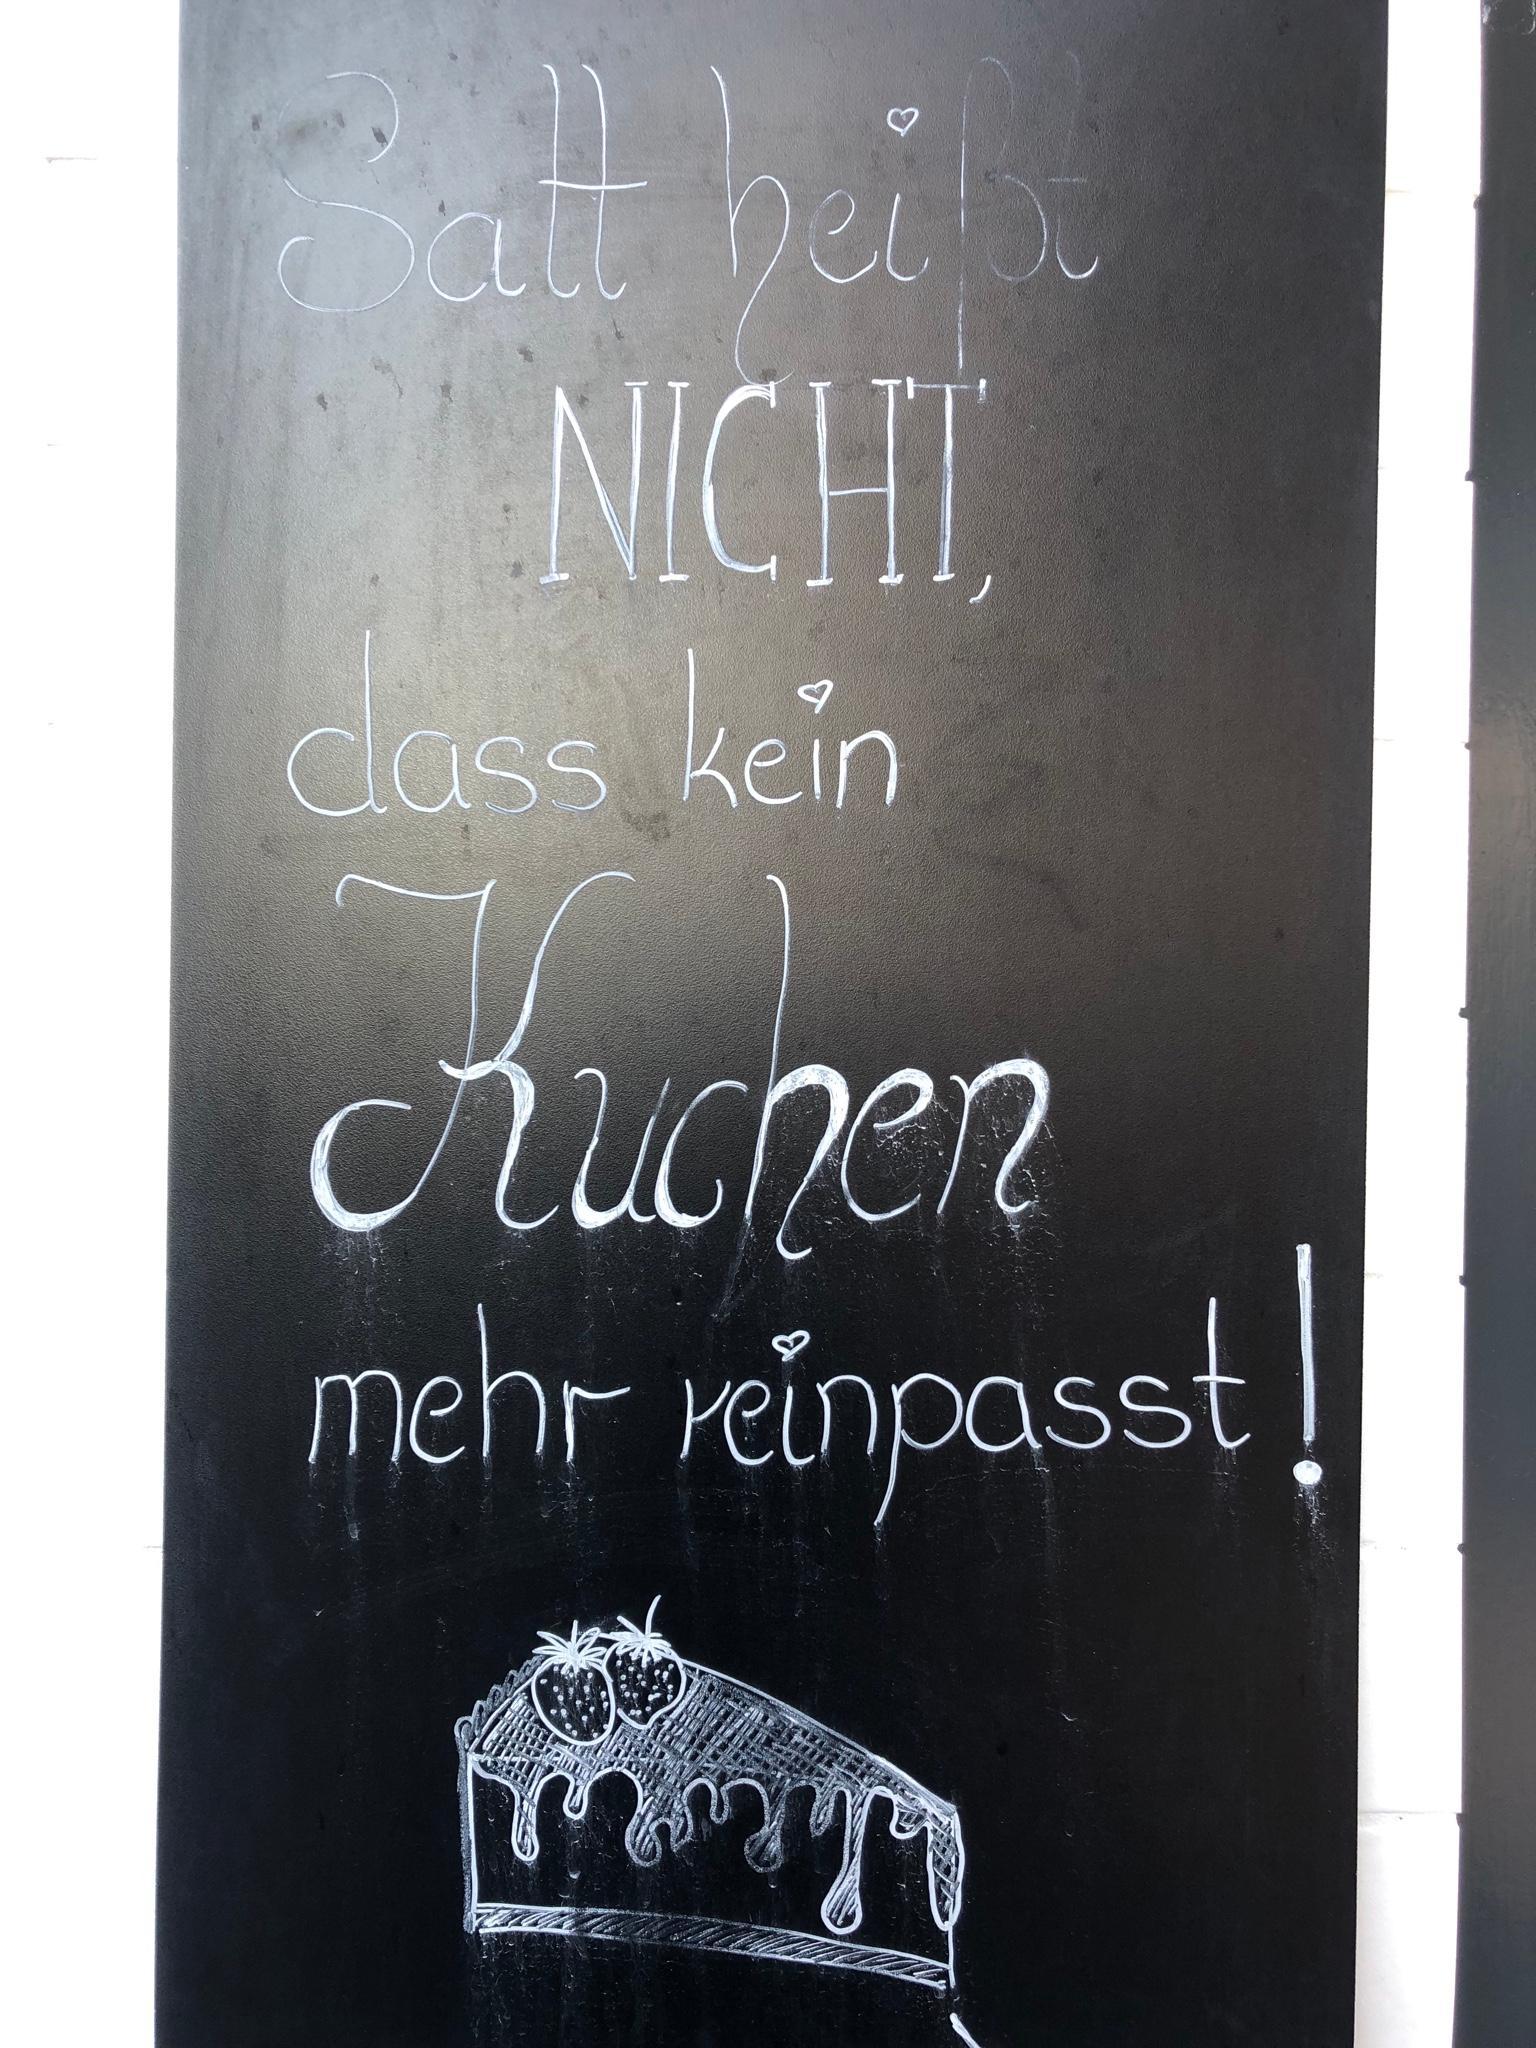 Satt heißt
NICHT,
dass kein
Kuchen
mehr reinpasst!